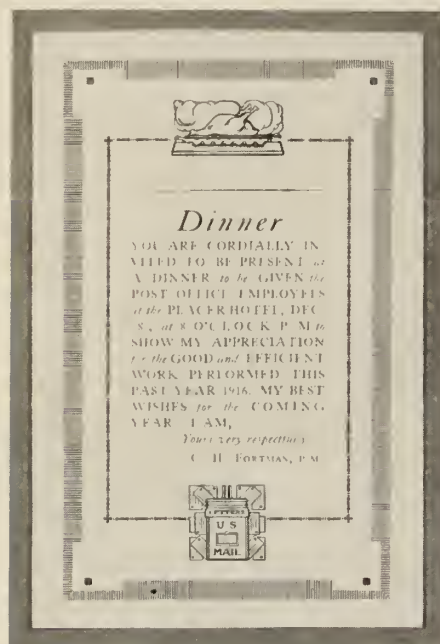 Dinner
YOU ARE CORDIALLY IN
VITED TO BE PRESENT at
A DINNER to be GIVEN the
POST OFFICE EMPLOYEES
at the PLACER HOTEL, DEC
at 8 O'CLOCK P M to
SHOW MY APPRECIATION
for the GOOD and EFFICIENT
WORK PERFORMED THIS
PAST YEAR 1916. MY BEST
WISHES for the COMING
YEAR I AM,
Yours very respectfully
C H FORTMAN, P M
LETTERS
U S
MAIL